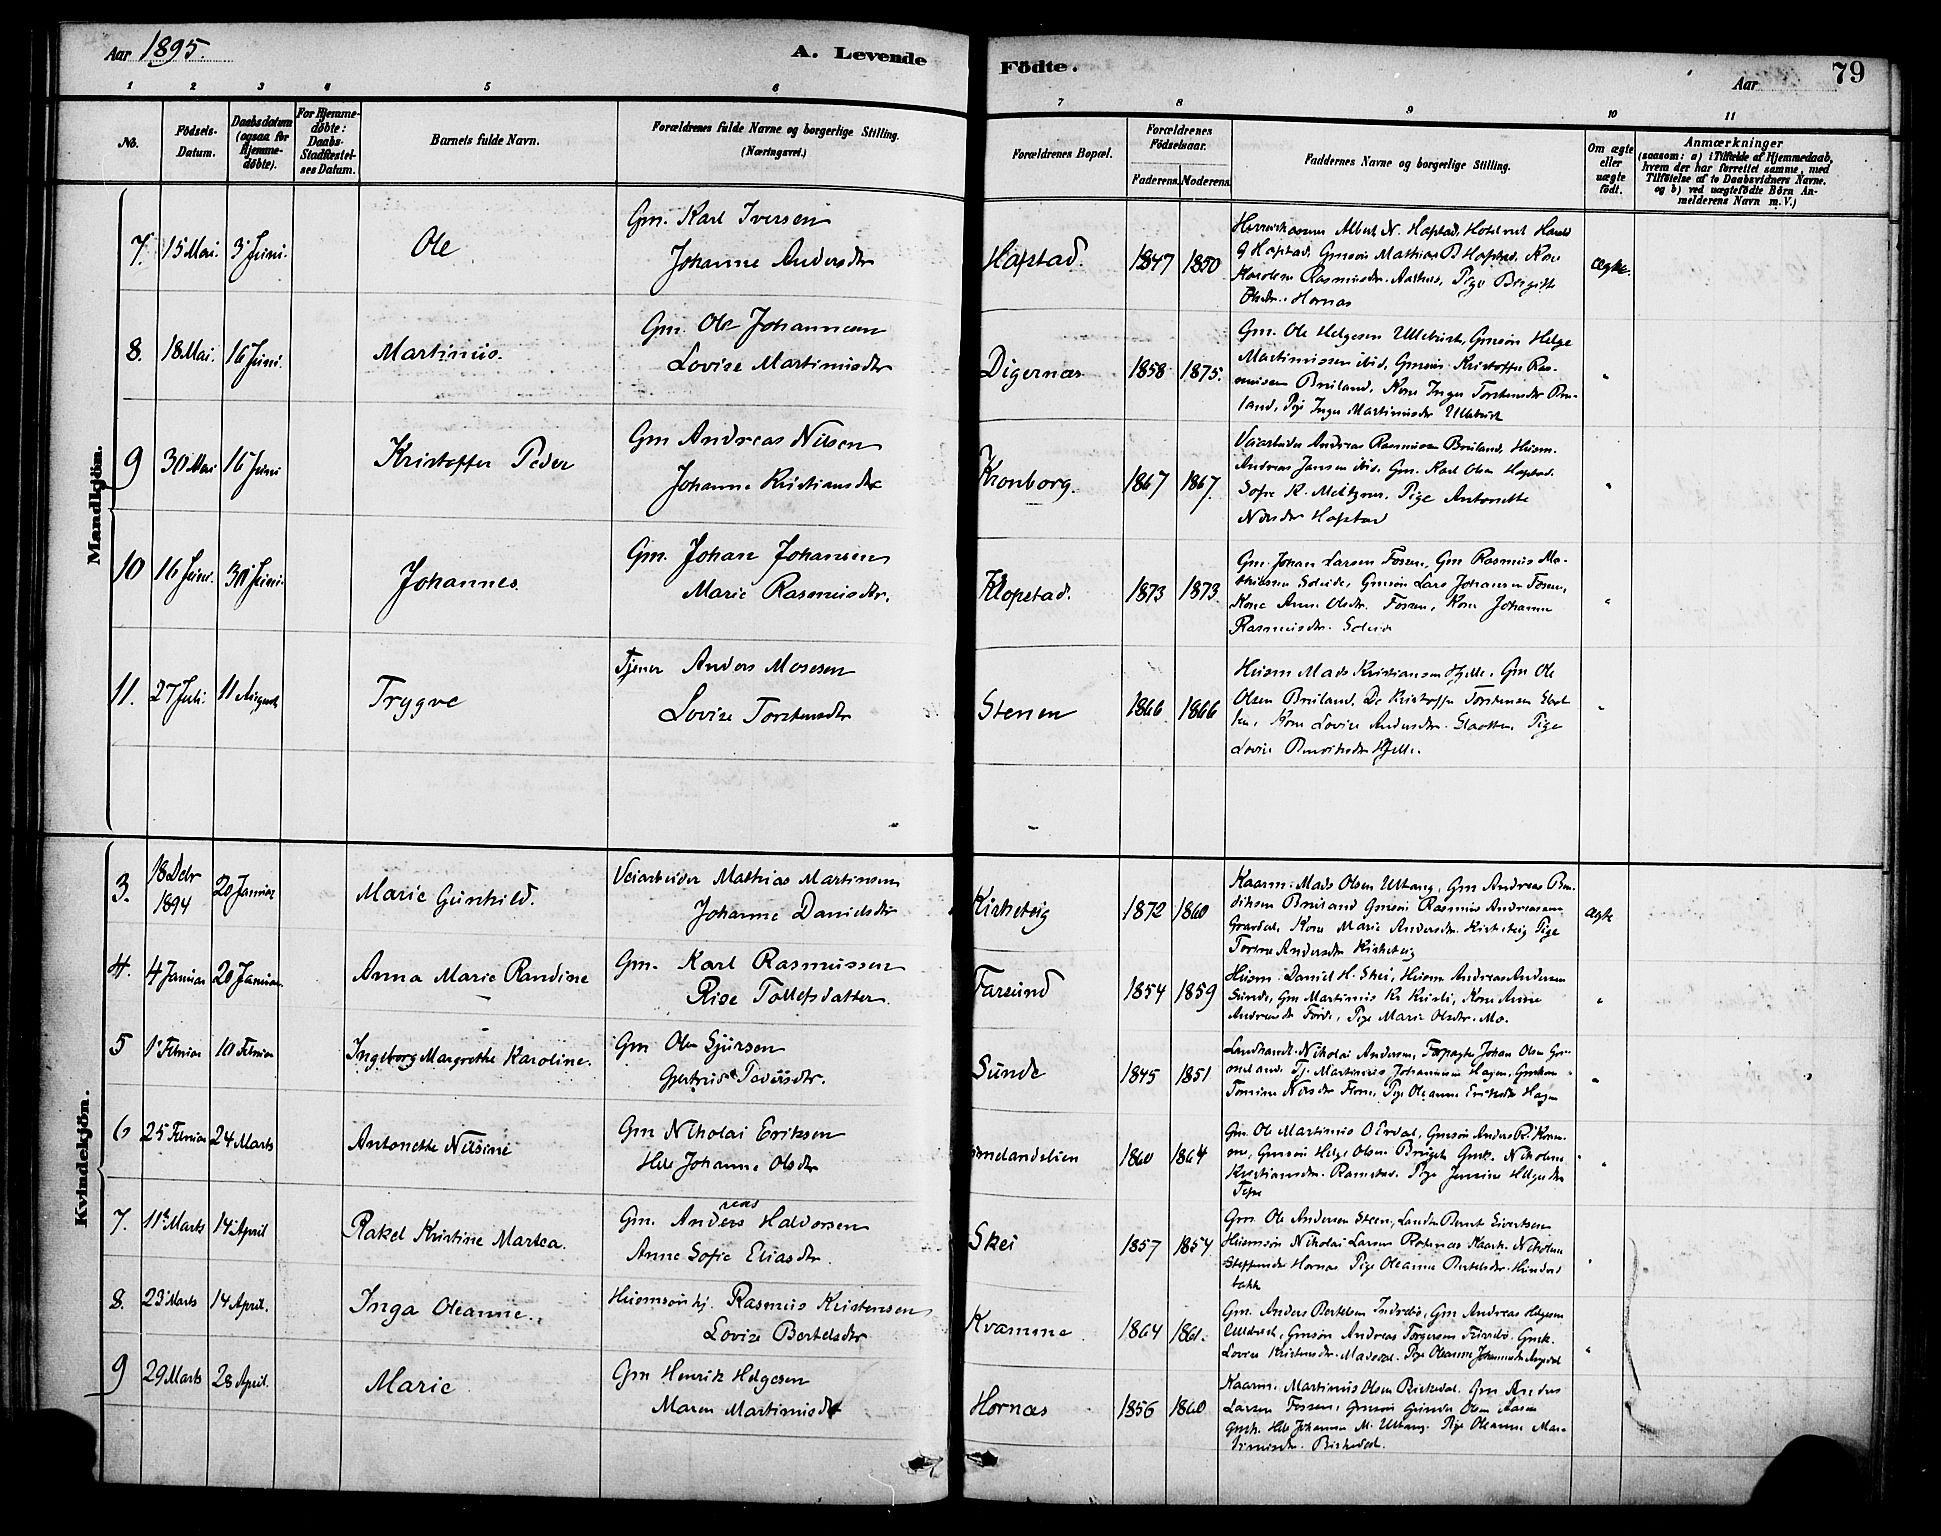 Aar 1895.
A. Levende Födte.
Aar
79
1 2 3 4 5 6 7 8 9 10 11
No.
Födsels-Datum.
Daabsdatum (ogsaa for Hjemme-döbte).
For Hjemme-döbte: Daabs-Stadfæstel-ses Datum.
Barnets fulde Navn.
Forældrenes fulde Navne og borgerlige Stilling. (Næringsvei.)
Forældrenes Bopæl.
Forældrenes Födselsaar.
Faderens. Moderens.
Faddernes Navne og borgerlige Stilling.
Om ægte eller uægte födt.
Anmærkninger
(saasom: a) i Tilfælde af Hjemmedaab, hvem der har forrettet samme, med Tilföielse af to Daabsvidners Navne. og b) ved uægtefödte Börn An-melderens Navn m.V.)
Mandkjön.
7. 15 Mai. 3 Juni. Ole Gm. Karl Iversen
Johanne Andersdtr Hafstad. 1847 1850 ægte.
Albert N. Hafstad,
Hafstad, Gmsøn Mathias B Hafstad, Kone
Rasmusdtr. Pige Birgitte
Olsdtr. Hornæs
8. 18 Mai. 16 Juni. Martinus. Gm. Ole Johannesen
Lovise Martinusdtr Digernæs 1858 1875. "
Gm. Ole Helgesen Ullebust, Gmsøn Helge
Martinussen ibid, Gmsøn Kristoffer Ras-
mussen Bruland, Kone Inger Torstensdtr Bru-
land, Pige Inger Martinusdtr Ullebust
9 30 Mai 16 Juni Kristoffer Peder Gm Andreas Nilsen
Johanne Kristiansdtr Kronborg. 1867 1867. "
Veiarbeider Andreas Rasmussen Bruland, Husm.
Andreas Jansen ibid. Gm. Karl Olsen Hafstad.
Sofie K. Pige Antonette
Nilsdtr Hafstad
10 16 Juni. 30 Juni. Johannes. Gm. Johan Johansen
Marie Rasmusdtr. Klopstad. 1873 1873. "
Gm. Johan Larsen Fossen, Gm Rasmus Ma-
thiassen Soleide, Gmsøn Lars Johansen Fossen,
Kone Anne Olsdtr. Fossen, Kone Johanne
Rasmusdtr. Soleide
11. 27 Juli. 11 August Trygve Tjener Anders Mosesen
Lovise Torstensdtr Stenen 1866 1866 "
Husm Mads Kristiansen Hjelle, Gm Ole
Olsen Bruland, Do Kristoffer Torstensen
Kone Lovise Andersdtr. Slaatten, Pige
Lovise Hjelle.
Kvindekjön.
3. 18 Dcbr 1894 20 Januar Marie Gunhild. Veiarbeider Mathias Martinsen
Johanne Danielsdtr Kirketeig 1872 1860 ægte
Kaarm. Mads Olsen Uthaug, Gm Andreas Ben-
diksen Bruland Gmsøn Rasmus Andreassen
Gravdal, Kone Marie Andersdtr. Kirketeig Pige
Andersdtr Kirketeig
4. 4 Januar 20 Januar. Anna Marie Randine Gm. Karl Rasmussen
Rise Tollefsdatter Farsund 1854 1859 "
Husm Daniel H. Skei, Husm Andreas Andersen
Sunde, Gm Martinus Kr Kusli, Kone Anne
Andreasdtr Förde, Pige Marie Olsdtr. Mo.
5 1 Februar 10 Februar Ingeborg Margrethe Karoline. Gm Ole Sjursen
Gjertrud Pedersdtr. Sunde 1845 1851 "
Landhandl. Nikolai Andersen, Forpagter Johan Olsen
Tj. Martinus Johannesen Hagen, Gmkone
Tomine Nilsdtr Pige Oleanne Eriksdtr Hagen
6 25 Februar 24 Marts Antonette Nilsine Gm Nikolai Eriksen
Hele Johanne Olsdtr 1860 1864 "
Gm. Ole Martinus O Erdal, Gmsøn Anders R.
Gmsøn Helge Olsen Gmk. Nikoline
Kristiansdtr. Ramstad. Pige Jensine Helgesdtr
Tefre
7. 11 Marts 14 April Rakel Kristine Martea. Gm. Anders reas Halvorsen
Anne Sofie Eliasdtr. Skei 1857 1854 "
Gm. Ole Andersen Steen, Bernt Sivertsen
Husmsøn Nikolai Larsen Nikoline
Steffensdtr Hornæs Pige Oleanne Bertelsdtr.
8. 23 Marts 14 April. Inga Oleanne. Husmsøn kj. Rasmus Kristensen
Lovise Bertelsdtr Kvamme 1864 1861. "
Gm. Anders Bertelsen Indrebö, Gm Andreas Helgesen
Ullebust, Gmsøn Andreas Torgersen Gmk.
Lovise Kristensdtr. Pige Oleanne Johannesdtr Angedal
9 29 Marts 28 April. Marie Gm Henrik Helgesen
Maren Martinusdtr Hornæs 1856 1860
Kaarm. Martinus Olsen Birkedal. Gm Anders
Larsen Fossen, Gmsøn Gunder Olsen
Gmk. Hele Johannes M. Uthaug. Pige Oleanne Mar-
tinusdtr. Birkedal.